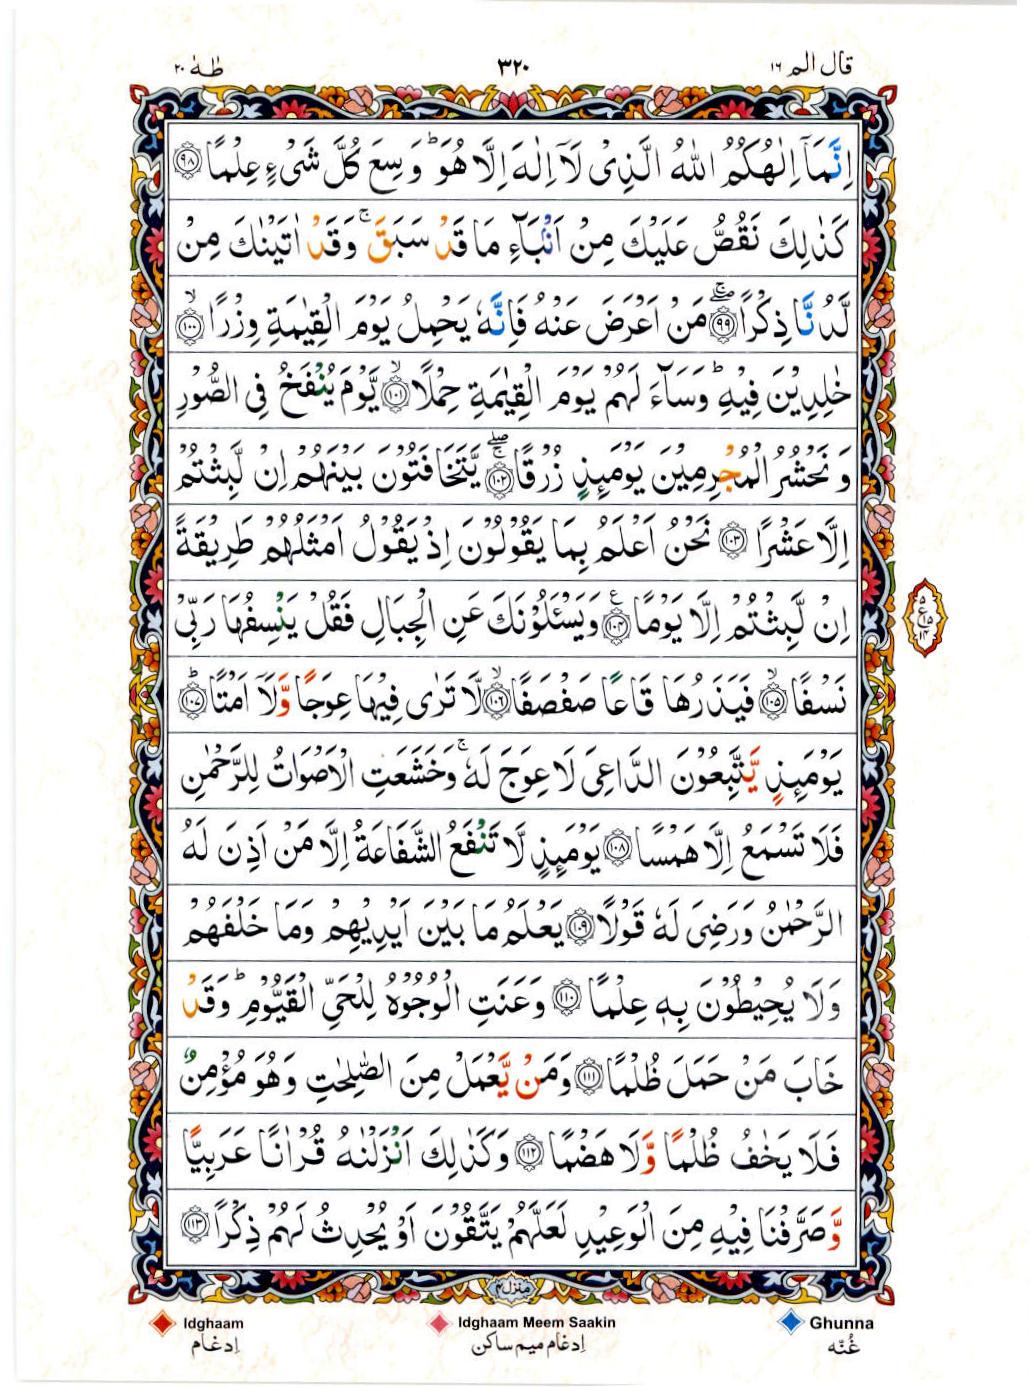 قال الم ١٦ ٣٢٠ طٰهٰ ٢٠
اِنَّمَاۤ اِلٰهُكُمُ اللّٰهُ الَّذِىْ لَاۤ اِلٰهَ اِلَّا هُوَ ؕ وَسِعَ كُلَّ شَىْءٍ عِلْمًا ﴿۹۸﴾
كَذٰلِكَ نَقُصُّ عَلَيْكَ مِنْ اَنْۢبَآءِ مَا قَدْ سَبَقَ ۚ وَقَدْ اٰتَيْنٰكَ مِنْ
لَّدُنَّا ذِكْرًا ۖۚ ﴿۹۹﴾ مَنْ اَعْرَضَ عَنْهُ فَاِنَّهٗ يَحْمِلُ يَوْمَ الْقِيٰمَةِ وِزْرًا ۙ ﴿۱۰۰﴾
خٰلِدِيْنَ فِيْهِ ؕ وَسَآءَ لَهُمْ يَوْمَ الْقِيٰمَةِ حِمْلًا ۙ ﴿۱۰۱﴾ يَّوْمَ يُنْفَخُ فِى الصُّوْرِ
وَ نَحْشُرُ الْمُجْرِمِيْنَ يَوْمَئِذٍ زُرْقًا ۖۚ ﴿۱۰۲﴾ يَّتَخَافَتُوْنَ بَيْنَهُمْ اِنْ لَّبِثْتُمْ
اِلَّا عَشْرًا ﴿۱۰۳﴾ نَحْنُ اَعْلَمُ بِمَا يَقُوْلُوْنَ اِذْ يَقُوْلُ اَمْثَلُهُمْ طَرِيْقَةً
اِنْ لَّبِثْتُمْ اِلَّا يَوْمًا ﴿۱۰۴﴾ع وَيَسْـَٔلُوْنَكَ عَنِ الْجِبَالِ فَقُلْ يَنْسِفُهَا رَبِّىْ
۵ ع ۱۵ ۱۴
نَسْفًا ۙ ﴿۱۰۵﴾ فَيَذَرُهَا قَاعًا صَفْصَفًا ۙ ﴿۱۰۶﴾ لَّا تَرٰى فِيْهَا عِوَجًا وَّلَاۤ اَمْتًا ؕ ﴿۱۰۷﴾
يَوْمَئِذٍ يَّتَّبِعُوْنَ الدَّاعِىَ لَا عِوَجَ لَهٗ ۚ وَخَشَعَتِ الْاَصْوَاتُ لِلرَّحْمٰنِ
فَلَا تَسْمَعُ اِلَّا هَمْسًا ﴿۱۰۸﴾ يَوْمَئِذٍ لَّا تَنْفَعُ الشَّفَاعَةُ اِلَّا مَنْ اَذِنَ لَهُ
الرَّحْمٰنُ وَرَضِىَ لَهٗ قَوْلًا ﴿۱۰۹﴾ يَعْلَمُ مَا بَيْنَ اَيْدِيْهِمْ وَمَا خَلْفَهُمْ
وَلَا يُحِيْطُوْنَ بِهٖ عِلْمًا ﴿۱۱۰﴾ وَعَنَتِ الْوُجُوْهُ لِلْحَىِّ الْقَيُّوْمِ ؕ وَقَدْ
خَابَ مَنْ حَمَلَ ظُلْمًا ﴿۱۱۱﴾ وَمَنْ يَّعْمَلْ مِنَ الصّٰلِحٰتِ وَهُوَ مُؤْمِنٌ
فَلَا يَخٰفُ ظُلْمًا وَّلَا هَضْمًا ﴿۱۱۲﴾ وَكَذٰلِكَ اَنْزَلْنٰهُ قُرْاٰنًا عَرَبِيًّا
وَّصَرَّفْنَا فِيْهِ مِنَ الْوَعِيْدِ لَعَلَّهُمْ يَتَّقُوْنَ اَوْ يُحْدِثُ لَهُمْ ذِكْرًا ﴿۱۱۳﴾
منزل ۴
Idghaam Idghaam Meem Saakin Ghunna
اِدغام اِدغام میم ساکن غُنّه